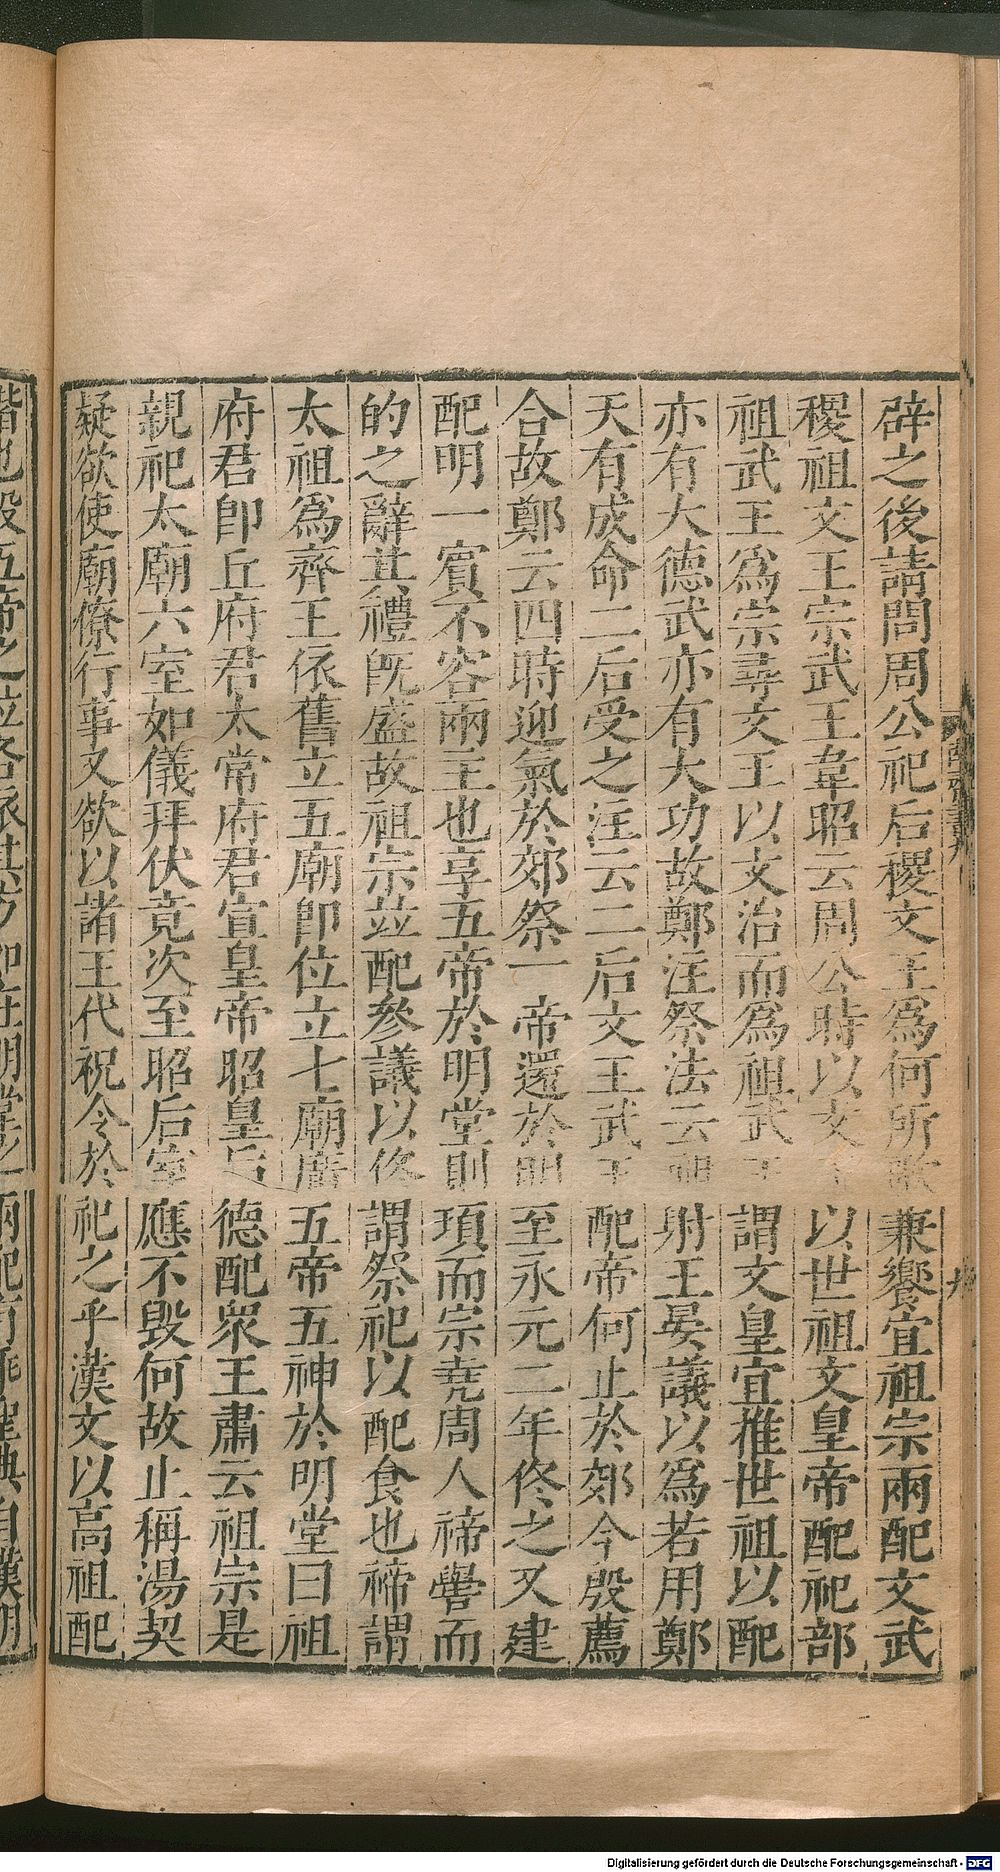 辟之後請問周公祀后稷文王爲何所歌兼饗宜祖宗兩配文武
稷祖文王宗武王韋昭云周公時以文王以世祖文皇帝配祀部
祖武王爲宗尋文王以文治而爲祖武王謂文皇宜推世祖以配
亦有大德武亦有大功故鄭注祭法云祖射王晏議以爲若用鄭
天有成命二后受之注云二后文王武王配帝何止於郊今殷薦
合故鄭云四時迎氣於郊祭一帝還於明至永元二年佟之又建
配明一賓不容兩主也享五帝於明堂則頊而宗堯周人禘嚳而
的之辭其禮旣盛故祖宗並配參議以佟謂祭祀以配食也禘謂
太祖爲齊王依舊立五廟卽位立七廟廣五帝五神於明堂曰祖
府君卽丘府君太常府君宣皇帝昭皇后德配衆王肅云祖宗是
親祀太廟六室如儀拜伏竟次至昭后室應不毀何故止稱湯契
疑欲使廟僚行事又欲以諸王代祝令於祀之乎漢文以高祖配
Digitalisierung gefördert durch die Deutsche Forschungsgemeinschaft - DFG